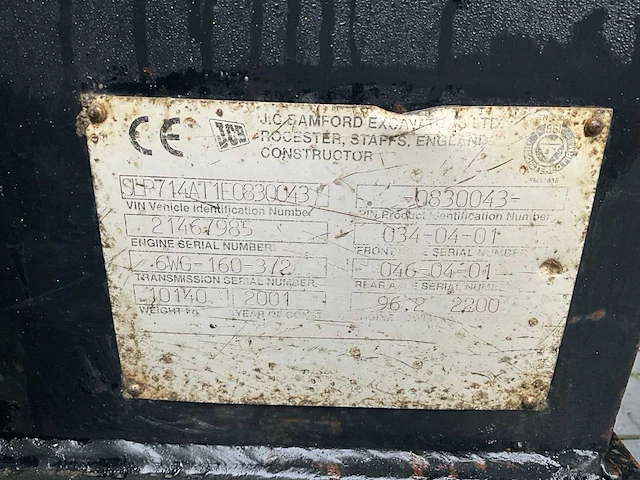 CE JCB J.C BAMFORD
ROCESTER, STAFFS, ENGLAND
CONSTRUCTOR
SLP714AT1E0830043 -0830043-
VIN Vehicle Identification Number PIN Product Identification Number
21467985 034-04-01
ENGINE SERIAL NUMBER SERIAL NUMBER
6WG-160-372 -046-04-01
TRANSMISSION SERIAL NUMBER REAR SERIAL NUMBER
10140 2001 96.2 2200
WEIGHT KG YEAR OF